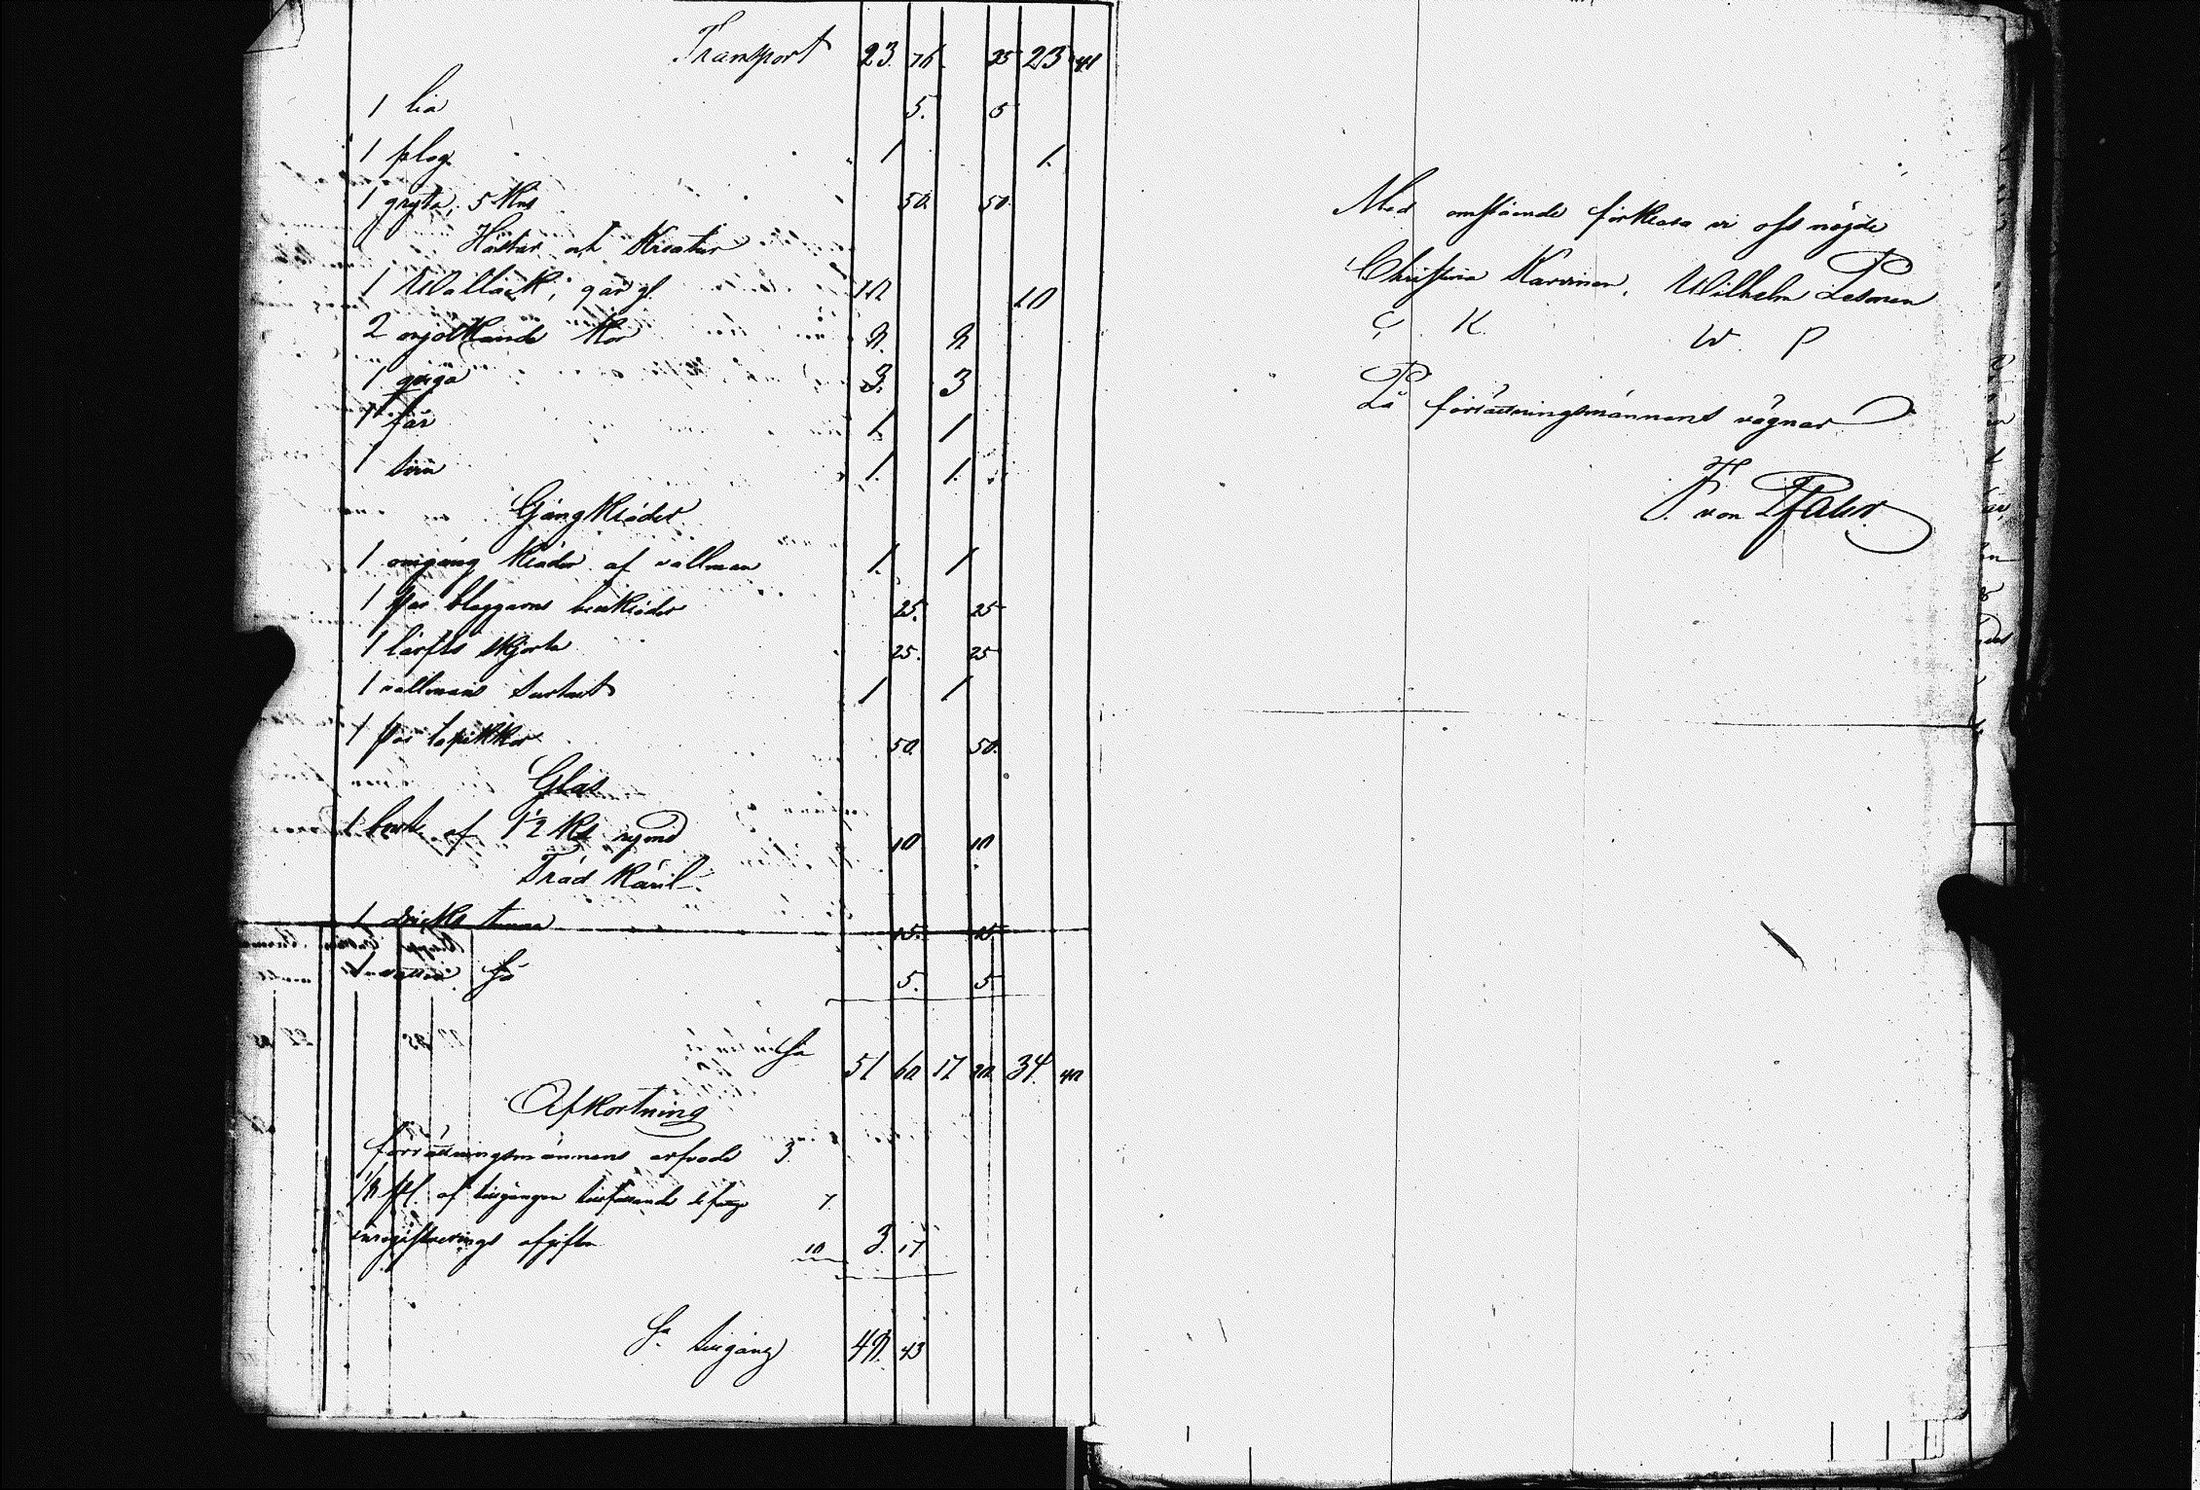 Transport 23. 76. 35 23 41
1 lia 5. 5
1 plog 1 1.
1 gryta, 5 Kns 50. 50.
Hästar och Kreatur
1 Wallack, 9 år gl. 10 10
2 mjolkande Kor 8. 8
1 qviga 3. 3
1 får 1. 1
1 svin 1. 1.
Gång Kläder
1 omgång Kläder af vallman 1. 1
1 par blaggarns benkläder 25. 25
1 lärfts skjorta 25. 25
1 vallmans surtut 1 1
1 par lapikkor 50. 50.
Glas
1 butl. af 1/2 Ks rymd 10 10
Träd Käril
1 dricks tunna 15. 15
1 vatten så 5. 5
Sa 51 60 17 20 34. 40
Afkortning
förrättningsmännens arfvode 3.
af tillgången tillfallande 7.
inregistrerings afgiften 10 3. 17
Sa tillgång 48. 43
Med omstående förklara vi oss nöjde
Christina Karvinen. Wilhelm Pesonen
C. K. W. P
På förrättningsmännens vägnar
F. von Pfaler.